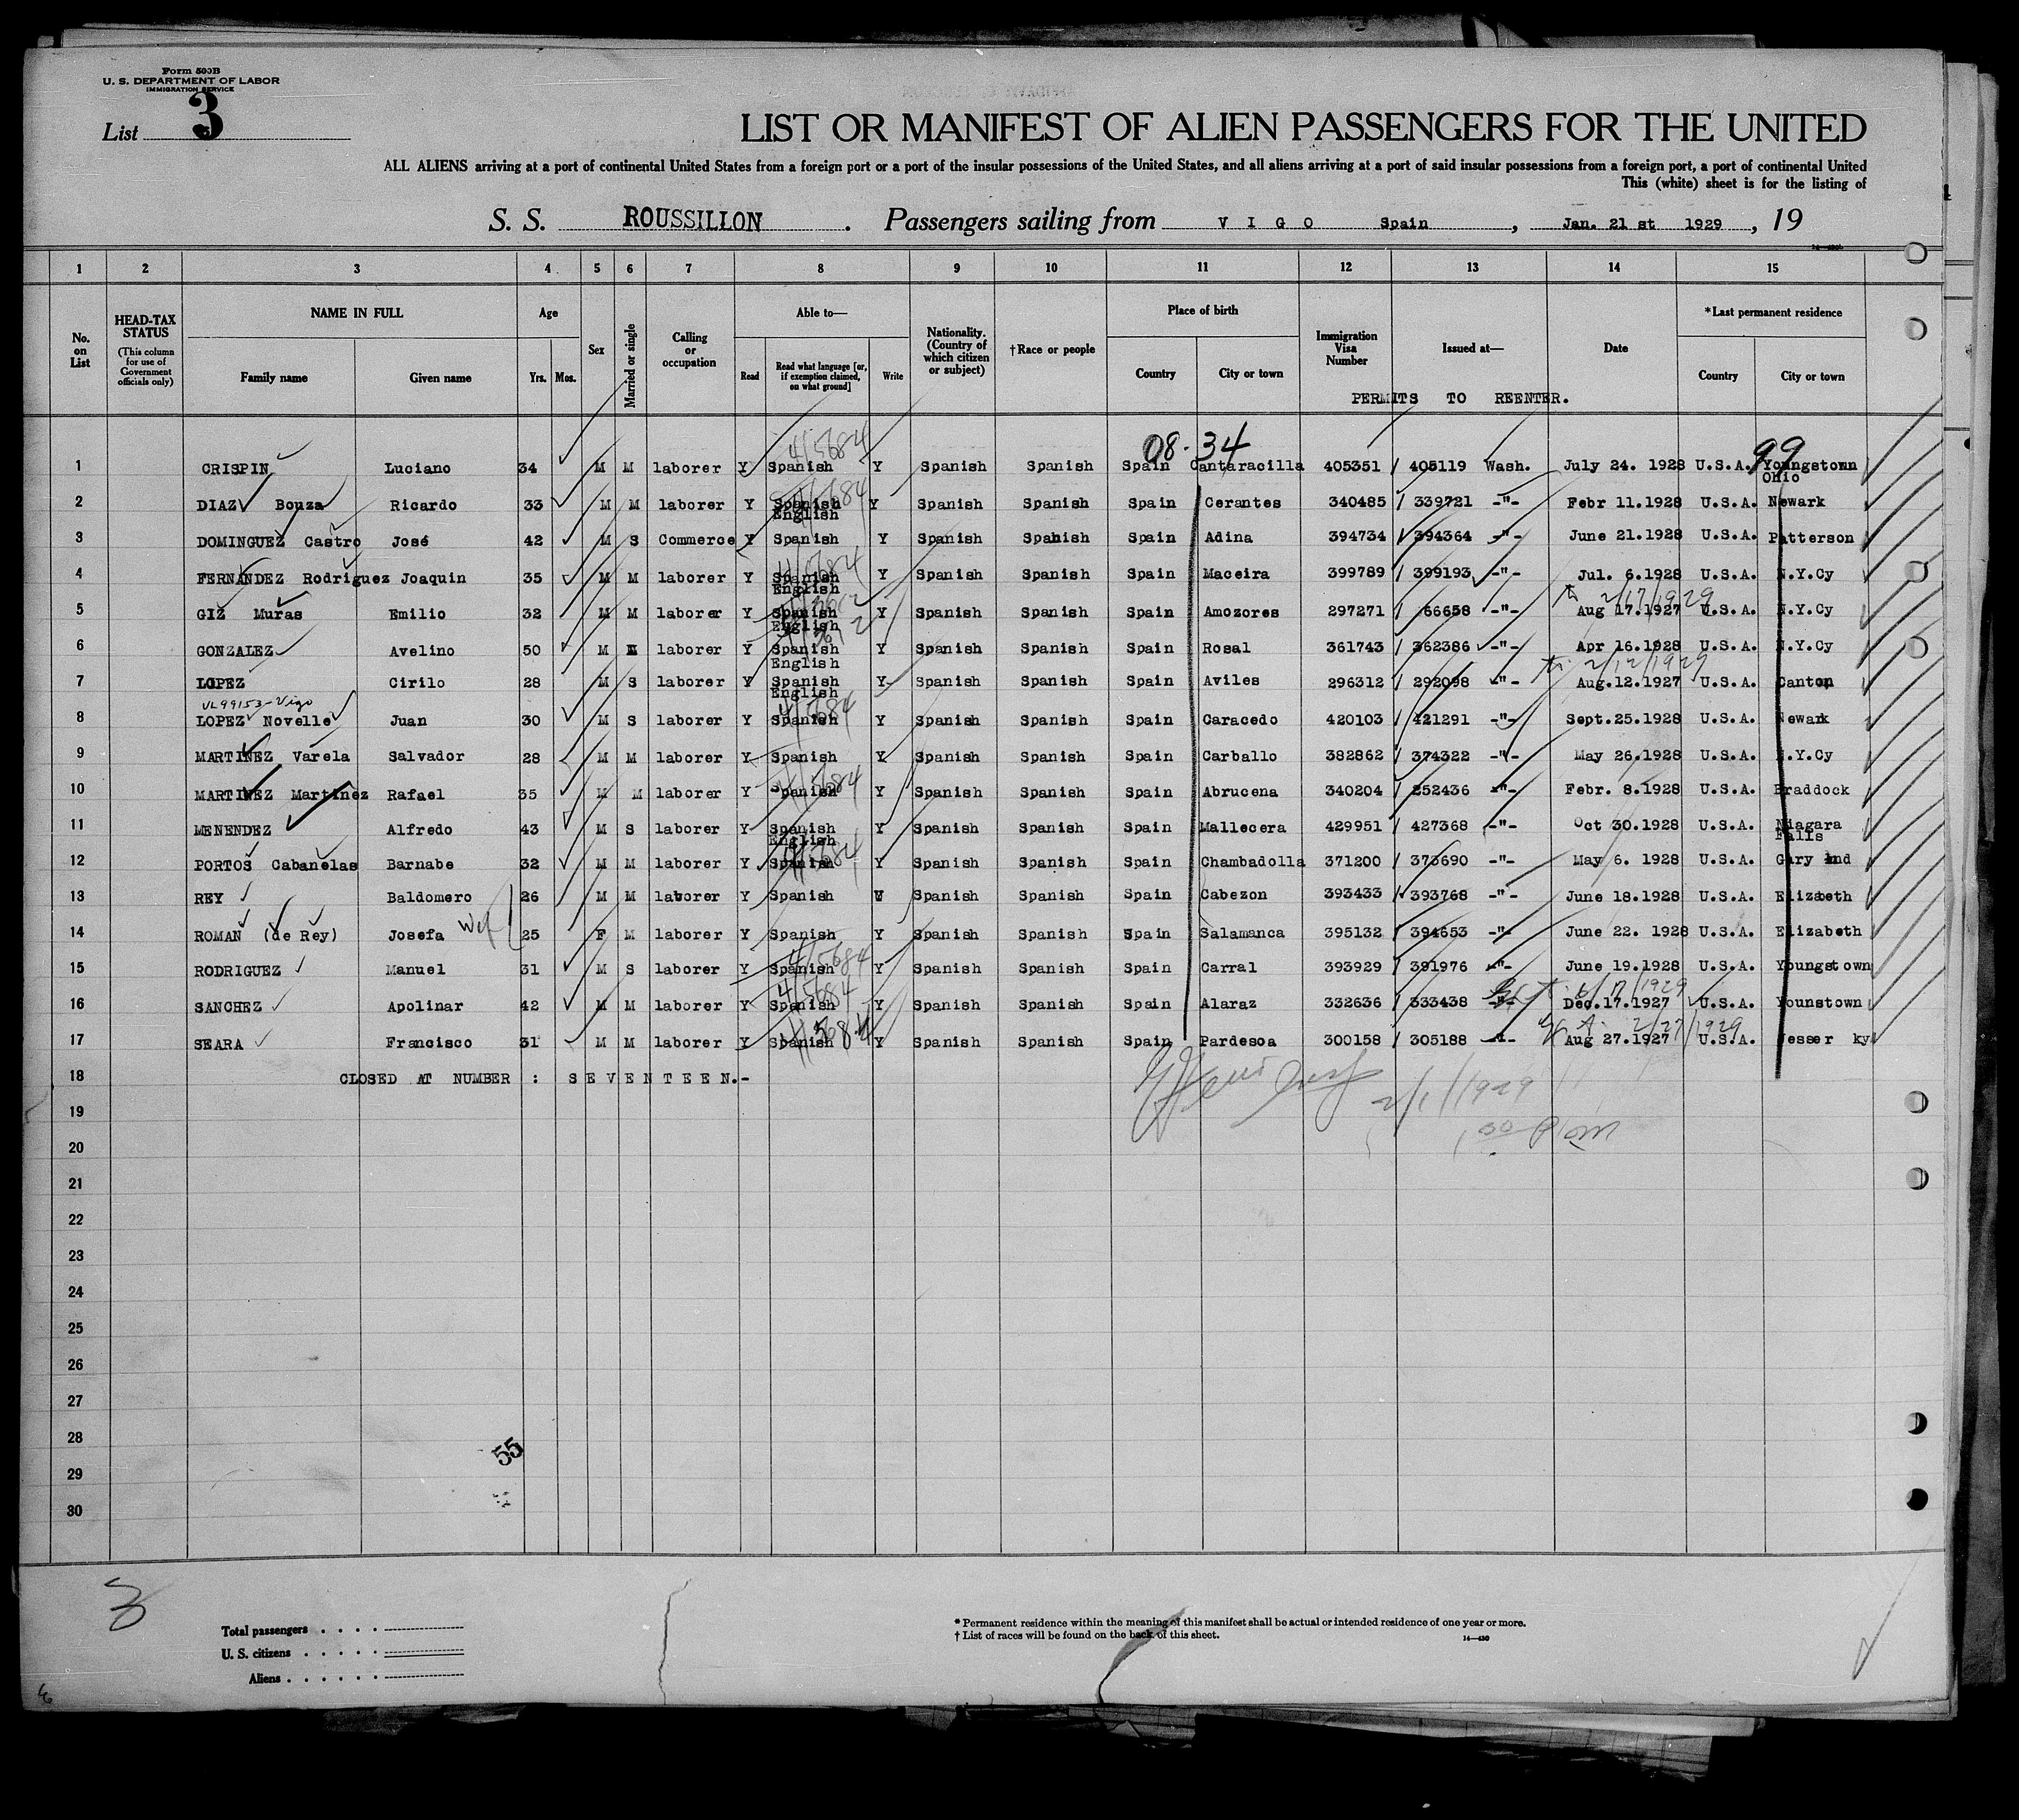 Form 500B
U. S. DEPARTMENT OF LABOR
IMMIGRATION SERVICE
List 3
LIST OR MANIFEST OF ALIEN PASSENGERS FOR THE UNITED
ALL ALIENS arriving at a port of continental United States from a foreign port or a port of the insular possessions of the United States, and all aliens arriving at a port of said insular possessions from a foreign port, a port of continental United
This (white) sheet is for the listing of
S. S. ROUSSILLON . Passengers sailing from V I G O Spain , Jan. 21 st 1929 , 19
1 2 3 4 5 6 7 8 9 10 11 12 13 14 15
No. on List
HEAD-TAX STATUS (This column for use of Government officials only)
NAME IN FULL Family name Given name
Age Yrs. Mos.
Sex
Married or single
Calling or occupation
Able to— Read Read what language [or, if exemption claimed, on what ground] Write
Nationality. (Country of which citizen or subject)
†Race or people
Place of birth Country City or town
Immigration Visa Number
Issued at—
Date
*Last permanent residence Country City or town
PERMITS TO REENTER.
08-34 99
1 CRISPIN Luciano 34 M M laborer Y Spanish Y Spanish Spanish Spain Cantaracilla 405351 / 405119 Wash. July 24. 1928 U.S.A. Youngstown Ohio
2 DIAZ Bouza Ricardo 33 M M laborer Y Spanish English Y Spanish Spanish Spain Cerantes 340485 / 339721 -"- Febr 11.1928 U.S.A. Newark
3 DOMINGUEZ Castro José 42 M S Commerce Y Spanish Y Spanish Spanish Spain Adina 394734 / 394364 -"- June 21.1928 U.S.A. Patterson
4 FERNANDEZ Rodriguez Joaquin 35 M M laborer Y Spanish English Y Spanish Spanish Spain Maceira 399789 / 399193 -"- Jul. 6.1928 U.S.A. N.Y.Cy
2/17/1929
5 GIZ Muras Emilio 32 M M laborer Y Spanish English Y Spanish Spanish Spain Amozores 297271 / 66658 -"- Aug 17.1927 U.S.A. N.Y.Cy
6 GONZALEZ Avelino 50 M M laborer Y Spanish English Y Spanish Spanish Spain Rosal 361743 / 362386 -"- Apr 16.1928 U.S.A. N.Y.Cy
2/12/1929
7 LOPEZ Cirilo 28 M S laborer Y Spanish English Y Spanish Spanish Spain Aviles 296312 / 292098 -"- Aug.12.1927 U.S.A. Canton
VL 99153-Vigo
8 LOPEZ Novelle Juan 30 M S laborer Y Spanish Y Spanish Spanish Spain Caracedo 420103 / 421291 -"- Sept.25.1928 U.S.A. Newark
9 MARTINEZ Varela Salvador 28 M M laborer Y Spanish Y Spanish Spanish Spain Carballo 382862 / 374322 -"- May 26.1928 U.S.A. N.Y.Cy
10 MARTINEZ Martinez Rafael 35 M M laborer Y Spanish Y Spanish Spanish Spain Abrucena 340204 / 252436 -"- Febr. 8.1928 U.S.A. Braddock
11 MENENDEZ Alfredo 43 M S laborer Y Spanish English Y Spanish Spanish Spain Mallecera 429951 / 427368 -"- Oct 30.1928 U.S.A. Niagara Falls
12 PORTOS Cabanelas Barnabe 32 M M laborer Y Spanish Y Spanish Spanish Spain Chambadolla 371200 / 373690 -"- May 6. 1928 U.S.A. Gary Ind
13 REY Baldomero 26 M M laborer Y Spanish Spanish Spanish Spain Cabezon 393433 / 393768 -"- June 18.1928 U.S.A. Elizabeth
14 ROMAN (de Rey) Josefa Wf 25 F M laborer Y Spanish Y Spanish Spanish Spain Salamanca 395132 / 394653 -"- June 22. 1928 U.S.A. Elizabeth
15 RODRIGUEZ Manuel 31 M S laborer Y Spanish Y Spanish Spanish Spain Carral 393929 / 391976 -"- June 19.1928 U.S.A. Youngstown
6/17/1929
16 SANCHEZ Apolinar 42 M M laborer Y Spanish Y Spanish Spanish Spain Alaraz 332636 / 333438 -"- Dec.17.1927 U.S.A. Younstown
2/27/1929
17 SEARA Francisco 31 M M laborer Y Spanish Y Spanish Spanish Spain Pardesoa 300158 / 305188 -"- Aug 27.1927 U.S.A. Jesser ky
18 CLOSED AT NUMBER : S E V E N T E E N.-
2/1/1929
19
1 00 P m
20
21
22
23
24
25
26
27
28
55
29
30
3
Total passengers
U. S. citizens
Aliens
* Permanent residence within the meaning of this manifest shall be actual or intended residence of one year or more.
† List of races will be found on the back of this sheet.
14—430